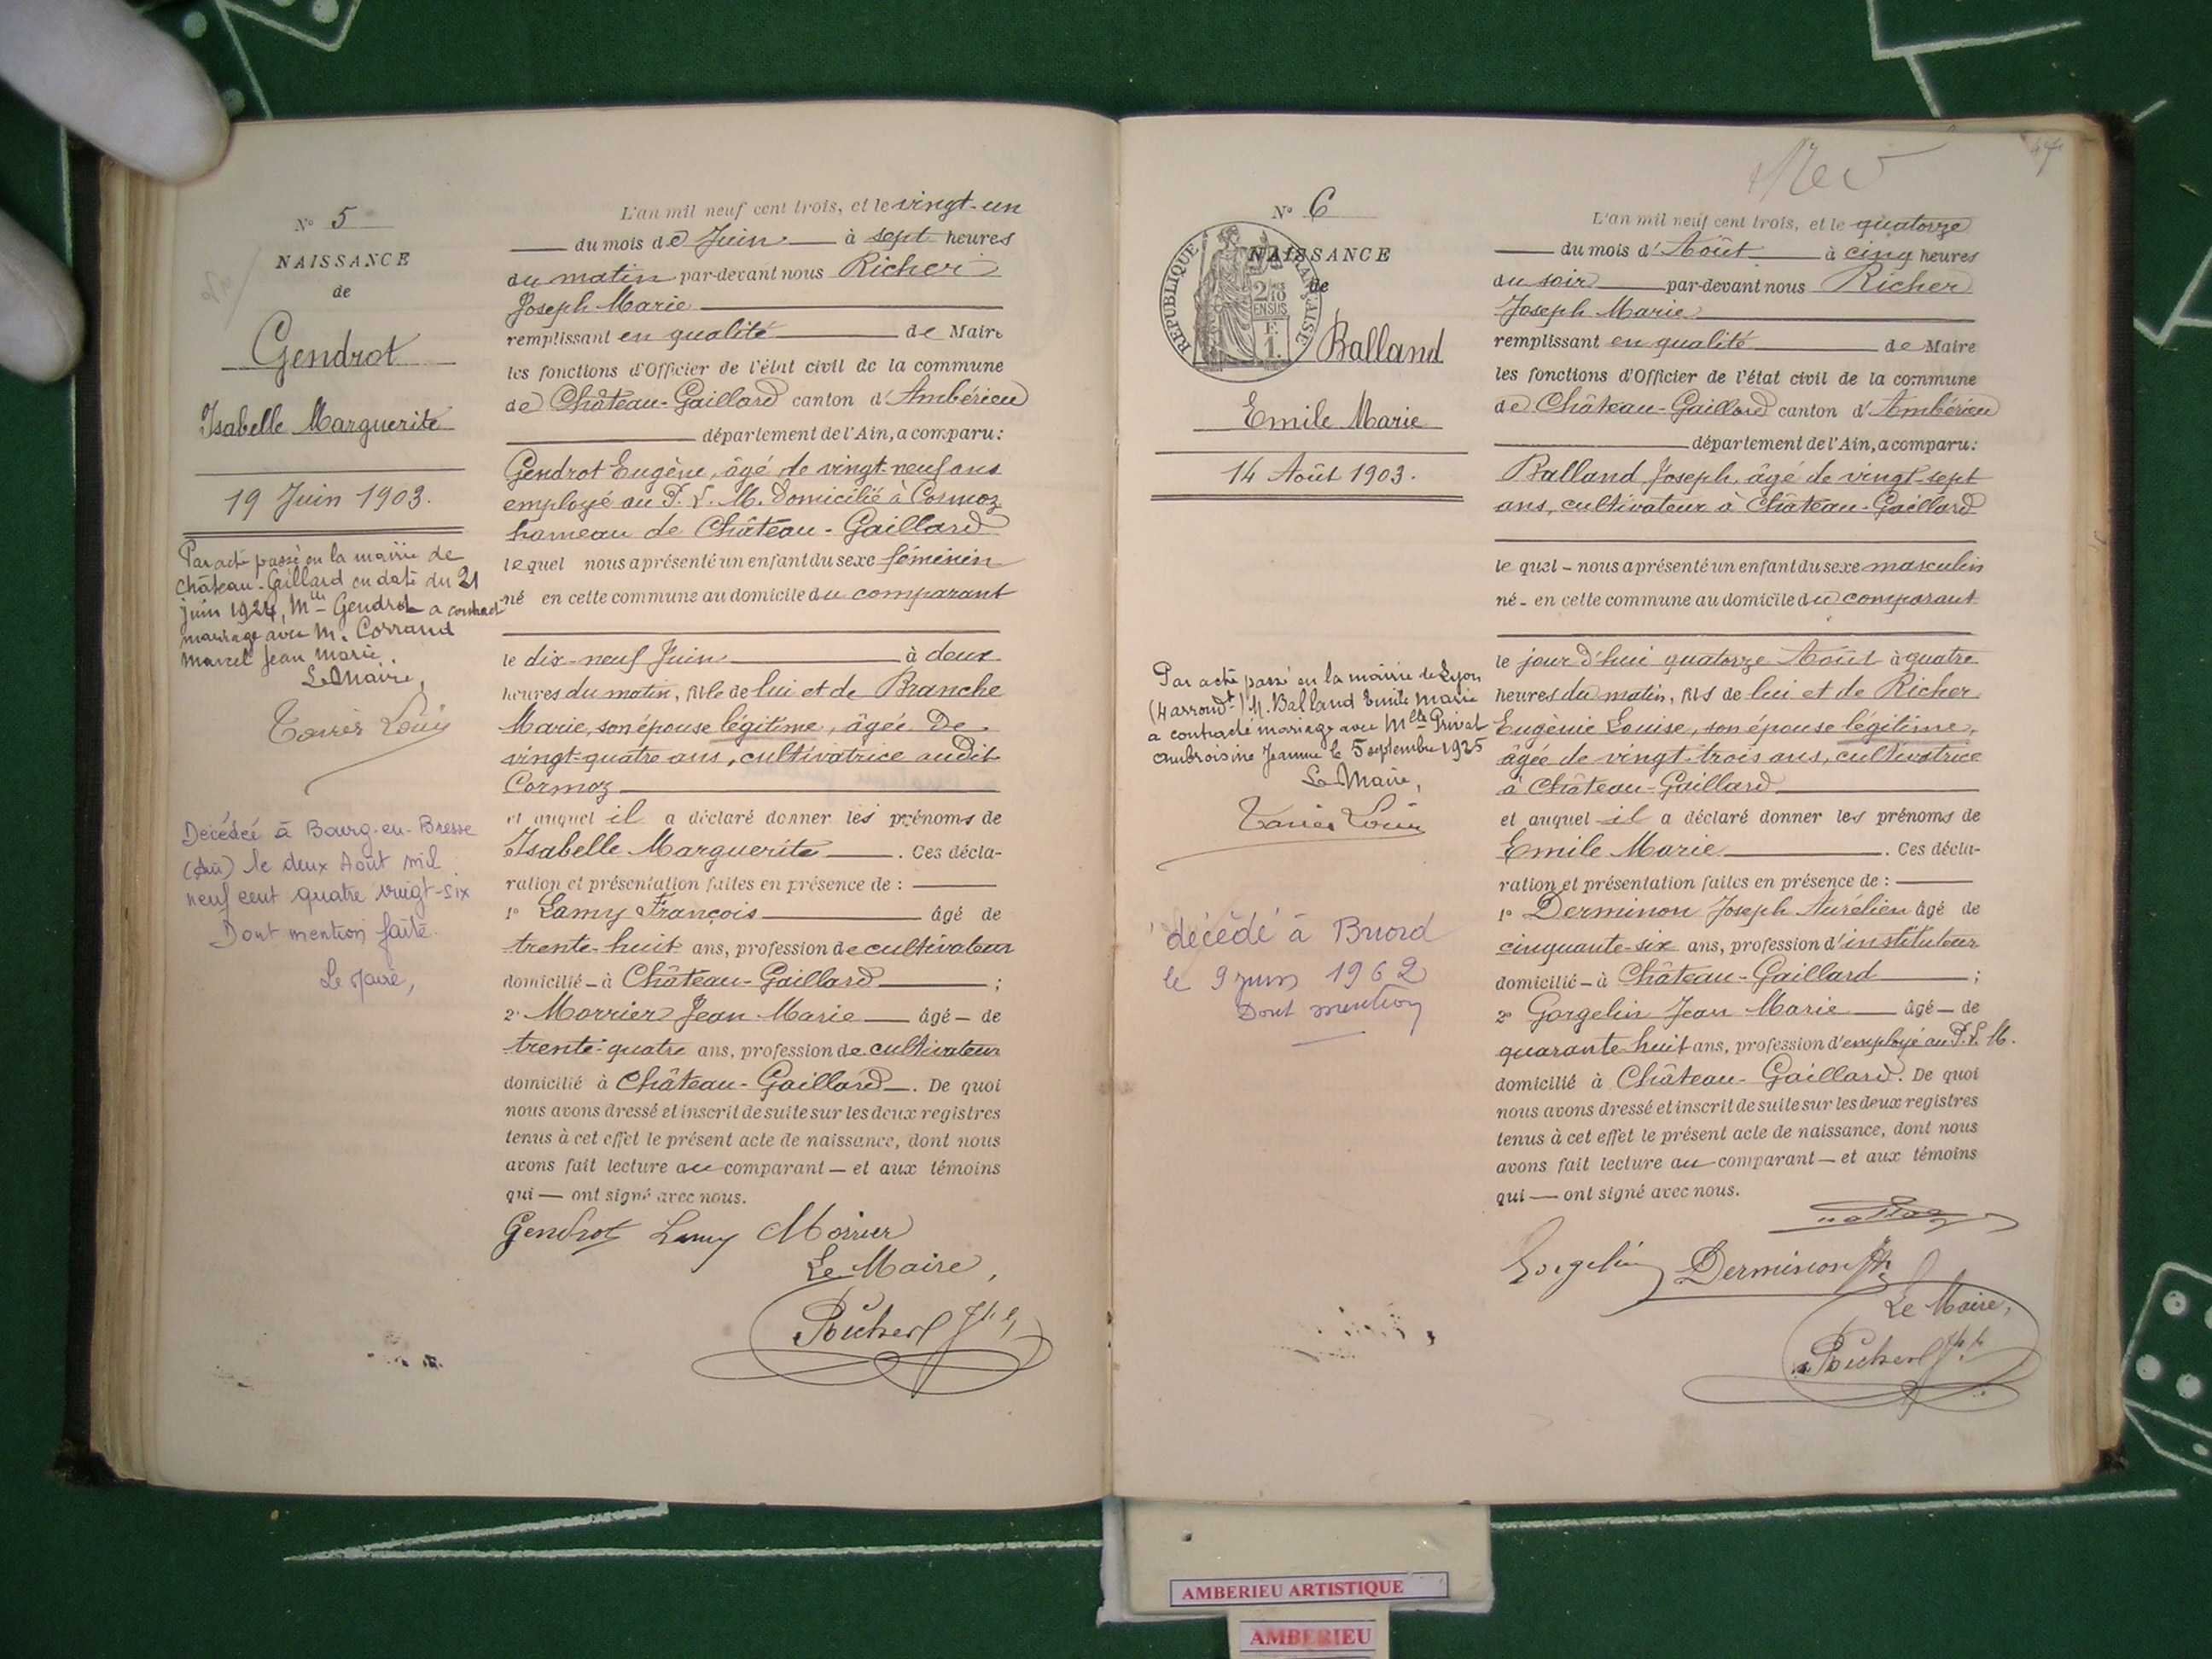 N° 5
NAISSANCE
de
Gendrot
Isabelle Marguerite
19 Juin 1903.
Par acte passé en la mairie de
Château-Gaillard en date du 21
juin 1924, Mlle Gendrot a contracté
mariage avec M. Corrand
Marcel Jean Marie.
Le Maire,
Décédée à Bourg-en-Bresse
(Ain) le deux Août mil
neuf cent quatre vingt-six
Dont mention faite.
Le Maire,
L'an mil neuf cent trois, et le vingt-un
du mois de Juin à sept heures
du matin par-devant nous Richer
Joseph Marie
remplissant en qualité de Maire
les fonctions d'Officier de l'état civil de la commune
de Château-Gaillard canton d'Ambérieu
département de l'Ain, a comparu:
Gendrot Eugène, âgé de vingt-neuf ans
employé au P. L. M. domicilié à Cormoz
hameau de Château-Gaillard
lequel nous a présenté un enfant du sexe féminin
né en cette commune au domicile du comparant
le dix-neuf Juin à deux
heures du matin, fille de lui et de Branche
Marie, son épouse légitime, âgée de
vingt-quatre ans, cultivatrice audit
Cormoz
et auquel il a déclaré donner les prénoms de
Isabelle Marguerite. Ces décla-
ration et présentation faites en présence de :
1° Lamy François âgé de
trente-huit ans, profession de cultivateur
domicilié à Château-Gaillard ;
2° Morrier Jean Marie âgé de
trente-quatre ans, profession de cultivateur
domicilié à Château-Gaillard. De quoi
nous avons dressé et inscrit de suite sur les deux registres
tenus à cet effet le présent acte de naissance, dont nous
avons fait lecture au comparant et aux témoins
qui ont signé avec nous.
Gendrot Lamy Morrier
Le Maire,
Richerd Jh
N° 6
NAISSANCE
de
REPUBLIQUE FRANÇAISE
2/10
EN SUS
F.
1.
Balland
Emile Marie
14 Août 1903.
Par acte passé en la mairie de Lyon
(4 arrondt) M. Balland Emile Marie
a contracté mariage avec Mlle Privat
Ambroisine Jeanne le 5 septembre 1925
Le Maire,
décédé à Briord
le 9 juin 1962
Dont mention
47
L'an mil neuf cent trois, et le quatorze
du mois d'Août à cinq heures
du soir par-devant nous Richer
Joseph Marie
remplissant en qualité de Maire
les fonctions d'Officier de l'état civil de la commune
de Château-Gaillard canton d'Ambérieu
département de l'Ain, a comparu:
Balland Joseph, âgé de vingt-sept
ans, cultivateur à Château-Gaillard
lequel nous a présenté un enfant du sexe masculin
né en cette commune au domicile du comparant
le jour d'hui quatorze Août à quatre
heures du matin, fils de lui et de Richer
Eugènie Louise, son épouse légitime,
âgée de vingt-trois ans, cultivatrice
à Château-Gaillard
et auquel il a déclaré donner les prénoms de
Emile Marie. Ces décla-
ration et présentation faites en présence de :
1° Derminon Joseph Aurélien âgé de
cinquante-six ans, profession d'instituteur
domicilié à Château-Gaillard ;
2° Gorgelin Jean Marie âgé de
quarante-huit ans, profession d'employé au P. L. M.
domicilié à Château-Gaillard. De quoi
nous avons dressé et inscrit de suite sur les deux registres
tenus à cet effet le présent acte de naissance, dont nous
avons fait lecture au comparant et aux témoins
qui ont signé avec nous.
Gorgelin Derminon
Le Maire,
Richerd Jh
AMBERIEU ARTISTIQUE
AMBERIEU